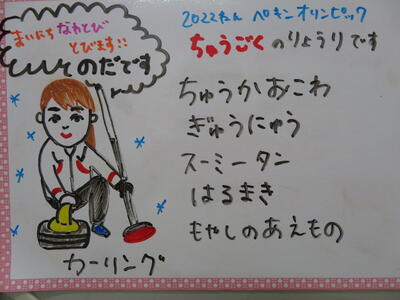 まいにち なわとび
とびます!!
そのだです
カーリング
2022ねん ペキンオリンピック
ちゅうごくのりょうりです
ちゅうかおこわ
ぎゅうにゅう
スーミータン
はるまき
もやしのあえもの